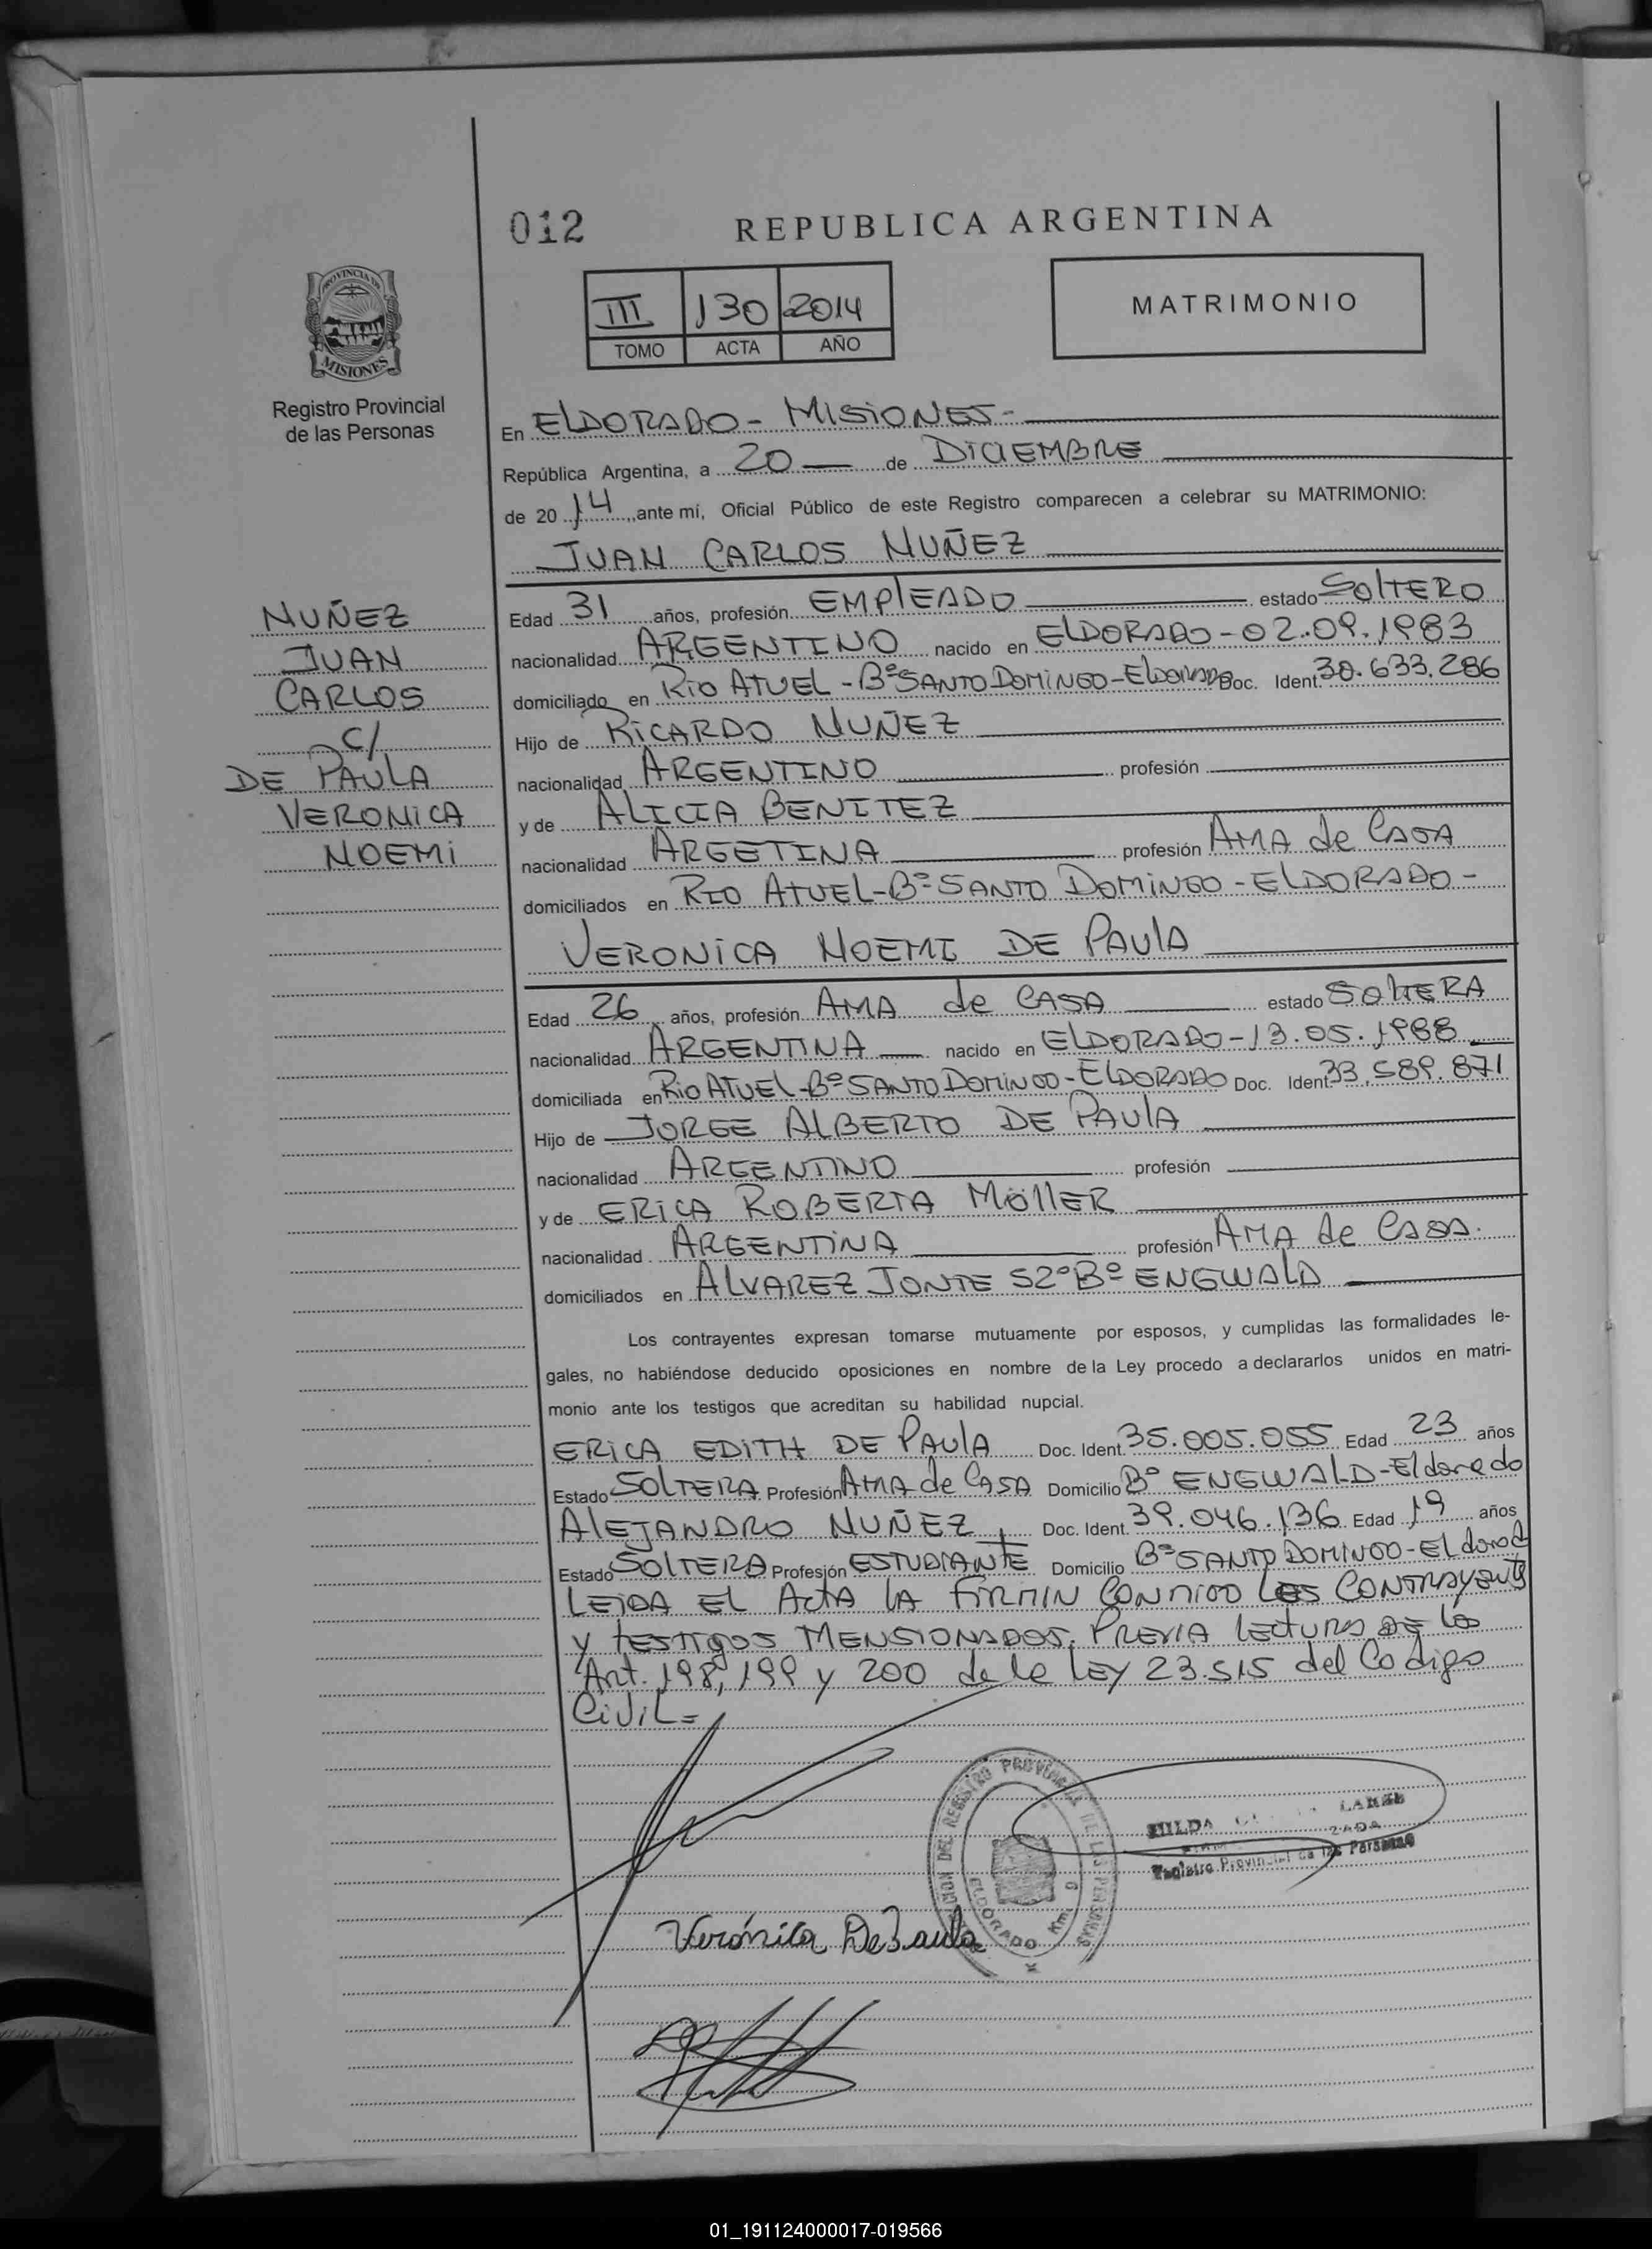 012
REPUBLICA ARGENTINA
PROVINCIA DE
MISIONES
Registro Provincial
de las Personas
III 130 2014
TOMO ACTA AÑO
MATRIMONIO
En ELDORADO - MISIONES -
República Argentina, a 20 de DICIEMBRE
de 2014, ante mí, Oficial Público de este Registro comparecen a celebrar su MATRIMONIO:
JUAN CARLOS NUÑEZ
NUÑEZ
JUAN
CARLOS
c/
DE PAULA
VERONICA
NOEMI
Edad 31 años, profesión EMPLEADO estado SOLTERO
nacionalidad ARGENTINO nacido en ELDORADO - 02.09.1983
domiciliado en RIO ATUEL - Bº SANTO DOMINGO - ELDORADO Doc. Ident. 30.633.286
Hijo de RICARDO NUÑEZ
nacionalidad ARGENTINO profesión
y de ALICIA BENITEZ
nacionalidad ARGETINA profesión AMA de CASA
domiciliados en RIO ATUEL - Bº SANTO DOMINGO - ELDORADO -
VERONICA NOEMI DE PAULA
Edad 26 años, profesión AMA de CASA estado SOLTERA
nacionalidad ARGENTINA nacido en ELDORADO - 13.05.1988
domiciliada en RIO ATUEL - Bº SANTO DOMINGO - ELDORADO Doc. Ident. 33.589.871
Hijo de JORGE ALBERTO DE PAULA
nacionalidad ARGENTINO profesión
y de ERICA ROBERTA MÖLLER
nacionalidad ARGENTINA profesión AMA de CASA.
domiciliados en ALVAREZ JONTE 52º Bº ENGWALD
Los contrayentes expresan tomarse mutuamente por esposos, y cumplidas las formalidades le-
gales, no habiéndose deducido oposiciones en nombre de la Ley procedo a declararlos unidos en matri-
monio ante los testigos que acreditan su habilidad nupcial.
ERICA EDITH DE PAULA Doc. Ident. 35.005.055 Edad 23 años
Estado SOLTERA Profesión AMA de CASA Domicilio Bº ENGWALD - Eldorado
ALEJANDRO NUÑEZ Doc. Ident. 39.046.136 Edad 19 años
Estado SOLTERA Profesión ESTUDIANTE Domicilio Bº SANTO DOMINGO - Eldorad
LEIDA EL ACTA LA FIRMAN CONMIGO LOS CONTRAYENTES
y TESTIGOS MENSIONADOS, PREVIA LECTURA DE LOS
Art. 198, 199 y 200 de la LEY 23.515 del Codigo
CIVIL =
REGISTRO PROVINCIAL DE LAS PERSONAS
ELDORADO Km.
HILDA
Registro Provincial de las Personas
Verónica De Paula
01_191124000017-019566